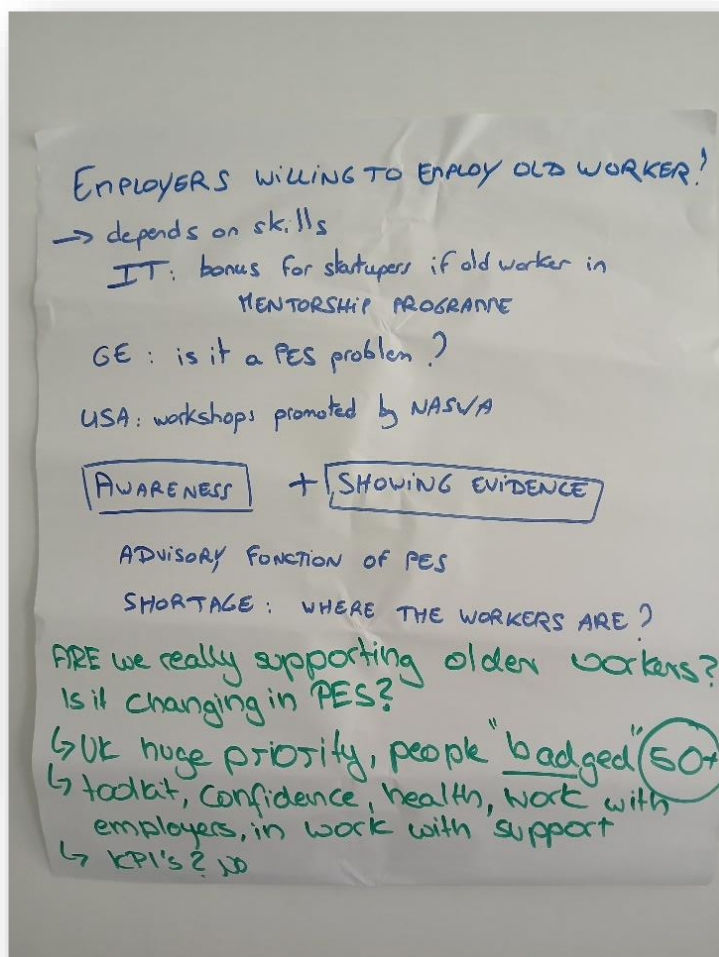 EMPLOYERS WILLING TO EMPLOY OLD WORKER?
→ depends on skills
IT: bonus for startupers if old worker in
MENTORSHIP PROGRAMME
GE : is it a PES problem?
USA: workshops promoted by NASWA
AWARENESS + SHOWING EVIDENCE
ADVISORY FONCTION OF PES
SHORTAGE : WHERE THE WORKERS ARE?
ARE we really supporting older workers?
Is it changing in PES?
↳ UK huge priority, people "badged" 50+
↳ toolkit, confidence, health, work with
employers, in work with support
↳ KPI's? NO